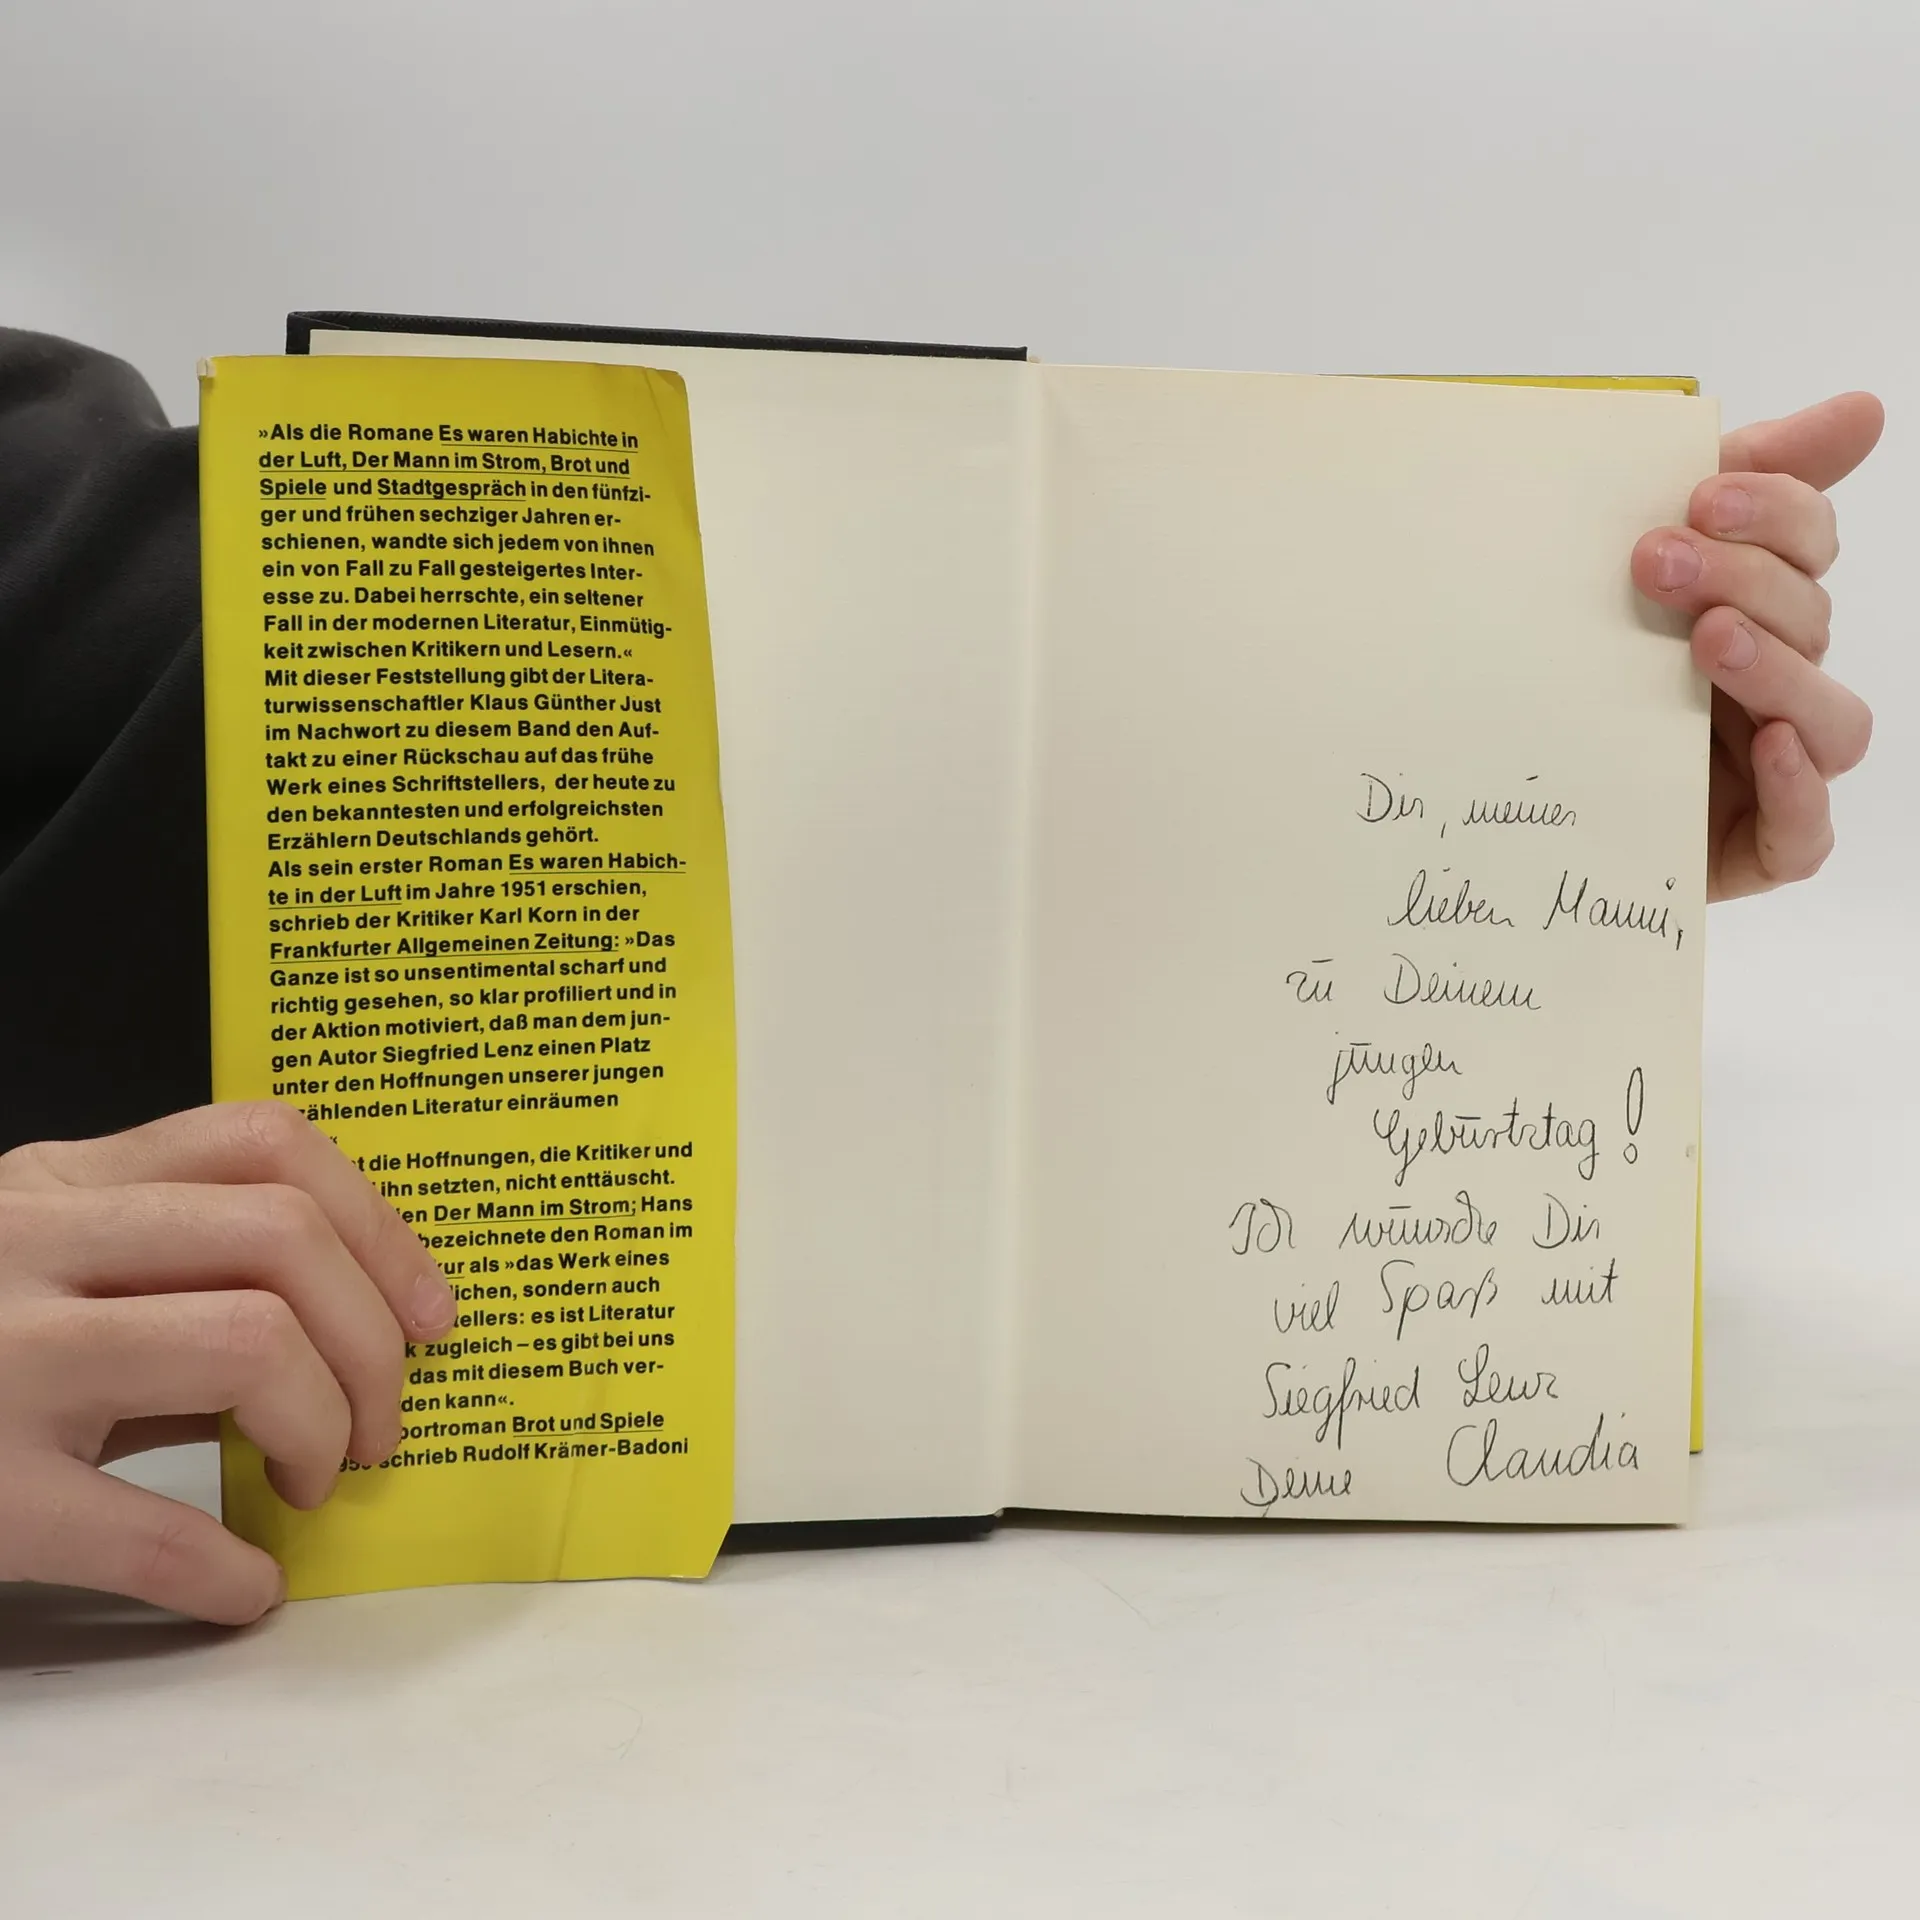 »Als die Romane Es waren Habichte in
der Luft, Der Mann im Strom, Brot und
Spiele und Stadtgespräch in den fünfzi-
ger und frühen sechziger Jahren er-
schienen, wandte sich jedem von ihnen
ein von Fall zu Fall gesteigertes Inter-
esse zu. Dabei herrschte, ein seltener
Fall in der modernen Literatur, Einmütig-
keit zwischen Kritikern und Lesern.«
Mit dieser Feststellung gibt der Litera-
turwissenschaftler Klaus Günther Just
im Nachwort zu diesem Band den Auf-
takt zu einer Rückschau auf das frühe
Werk eines Schriftstellers, der heute zu
den bekanntesten und erfolgreichsten
Erzählern Deutschlands gehört.
Als sein erster Roman Es waren Habich-
te in der Luft im Jahre 1951 erschien,
schrieb der Kritiker Karl Korn in der
Frankfurter Allgemeinen Zeitung: »Das
Ganze ist so unsentimental scharf und
richtig gesehen, so klar profiliert und in
der Aktion motiviert, daß man dem jun-
gen Autor Siegfried Lenz einen Platz
unter den Hoffnungen unserer jungen
zählenden Literatur einräumen
«
t die Hoffnungen, die Kritiker und
ihn setzten, nicht enttäuscht.
en Der Mann im Strom; Hans
bezeichnete den Roman im
kur als »das Werk eines
lichen, sondern auch
tellers: es ist Literatur
k zugleich – es gibt bei uns
das mit diesem Buch ver-
den kann«.
portroman Brot und Spiele
schrieb Rudolf Krämer-Badoni
Dir, meinen
lieben Manni,
zu Deinem
jungen
Geburtstag!
Ich wünsche Dir
viel Spaß mit
Siegfried Lenz
Deine Claudia